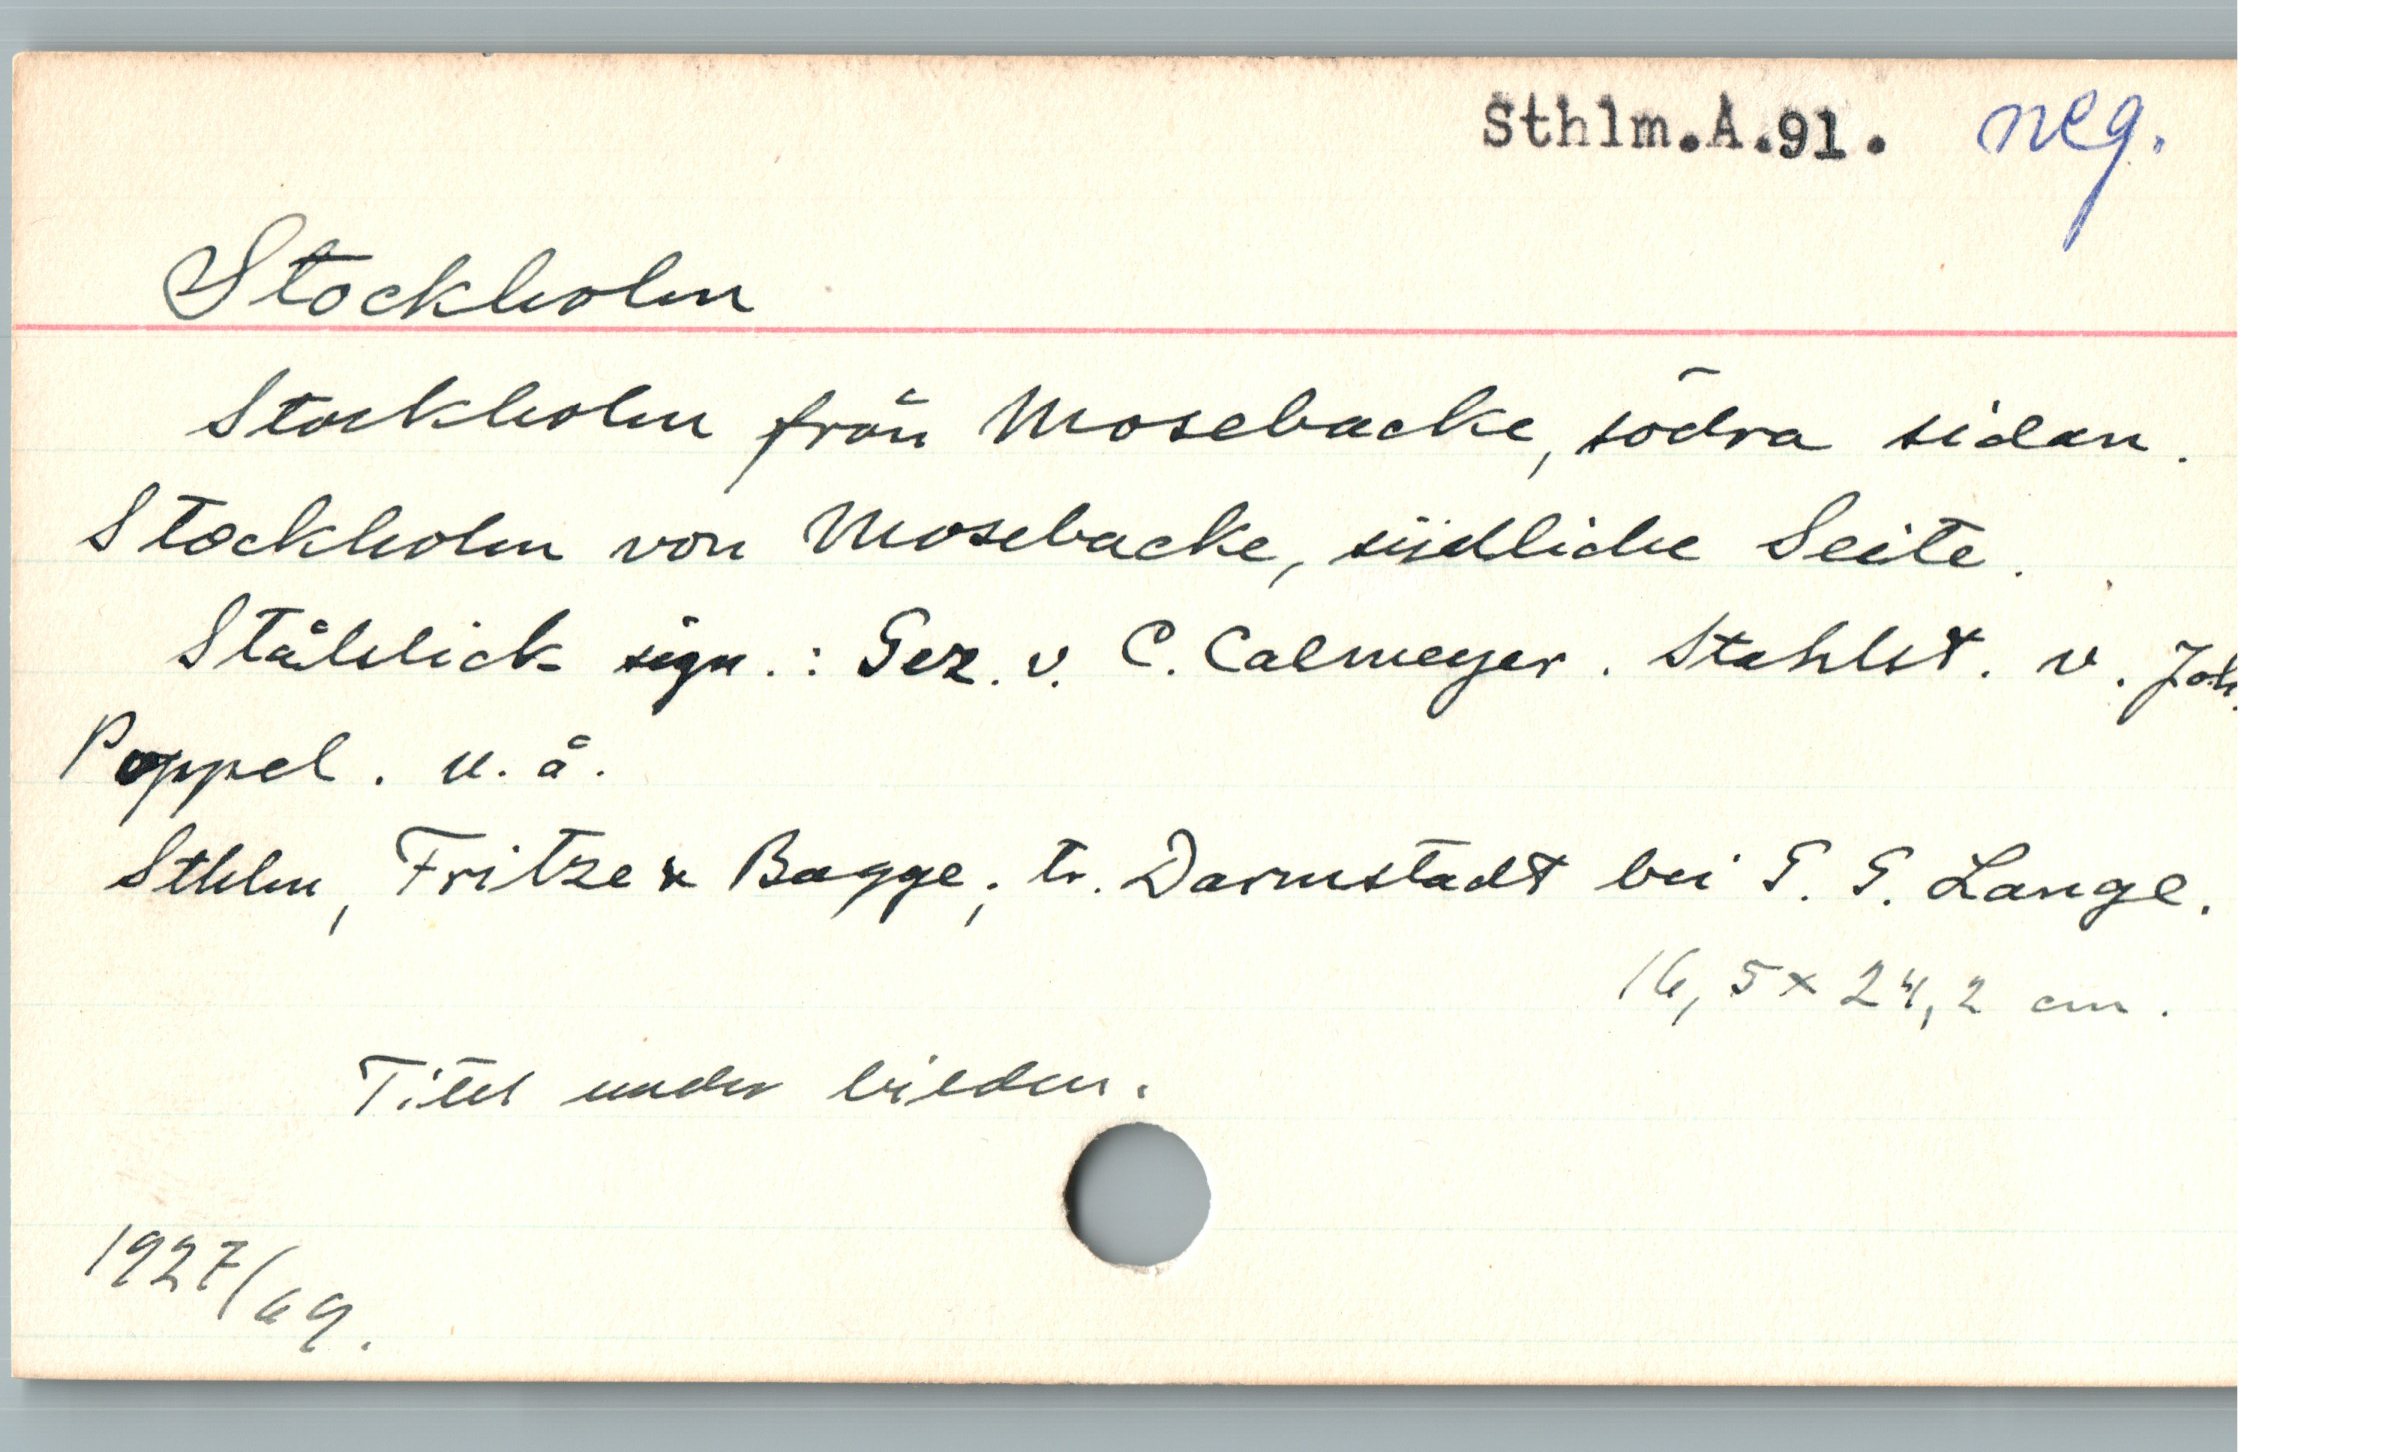 Sthlm.A.91. neg.
Stockholm
Stockholm från Mosebacke, södra sidan.
Stockholm von Mosebacke, südliche Seite.
Stålstick sign.: Gez. v. C. Calmeyer. Stahlst. v. Joh.
Poppel. u. å.
Sthlm, Fritze & Bagge; tr. Darmstadt bei G. G. Lange.
16,5 x 24,2 cm.
Titel under bilden.
1927/69.